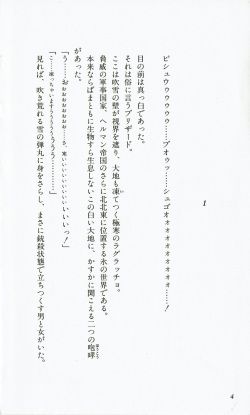 1
ピシュウウウウウウ……ブオウッ……シュゴオォォォォォォォォォ……！
目の前は真っ白であった。
それは俗に言うブリザード。
ここは吹雪の壁が視界を遮り、大地も凍てつく極寒のラグラッチョ。
脅威の軍事国家、ヘルマン帝国のさらに北北東に位置する氷の世界である。
本来ならばまともに生物すら生息しないこの白い大地に、かすかに聞こえる二つの咆哮
「う……おおぉぉぉぉぉ……さ、寒いいいいいいいいいいいっ！」
「こ……凍っちゃいますうううううううううう……」
見れば、吹き荒れる雪の弾丸に身をさらし、まさに銃殺状態で立ちつくす男と女がいた。
4